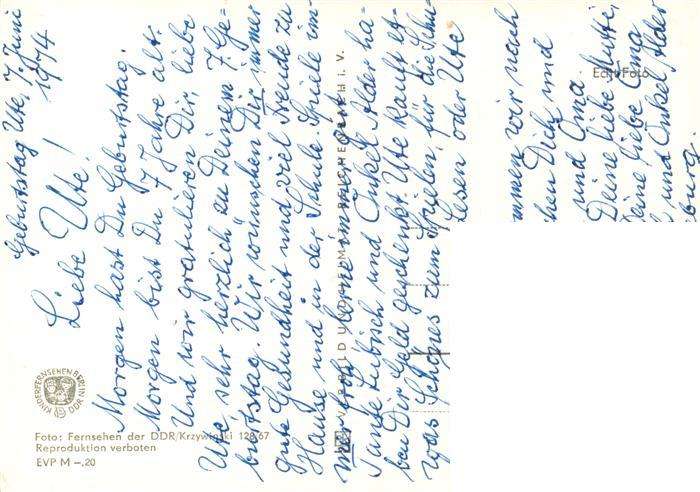 Geburtstag Ute, 7. Juni
1974
Liebe Ute!
Morgen hast Du Geburtstag.
Morgen bist Du 7 Jahre alt.
Und wir gratulieren Dir liebe
Ute, sehr herzlich zu Deinem 7. Ge-
burtstag. Wir wünschen Dir immer
gute Gesundheit und viel Freude zu
Hause und in der Schule. Spiele im-
mer froh, lerne immer gut.
Tante und Onkel Alder ha-
ben Dir Geld geschenkt. Ute kauft et-
was Schönes zum Spielen, für die Schu-
Lesen oder Ute
mmen wir nach
hen Dich und
und Oma
Deine liebe Mutti,
eine liebe Oma
und Onkel Alder
Echt Foto
KINDERFERNSEHEN BERLIN
DDR
Foto: Fernsehen der DDR/Krzywinski 128/67
Reproduktion verboten
EVP M –,20
VEB BILD UND HEIMAT REICHENBACH i. V.